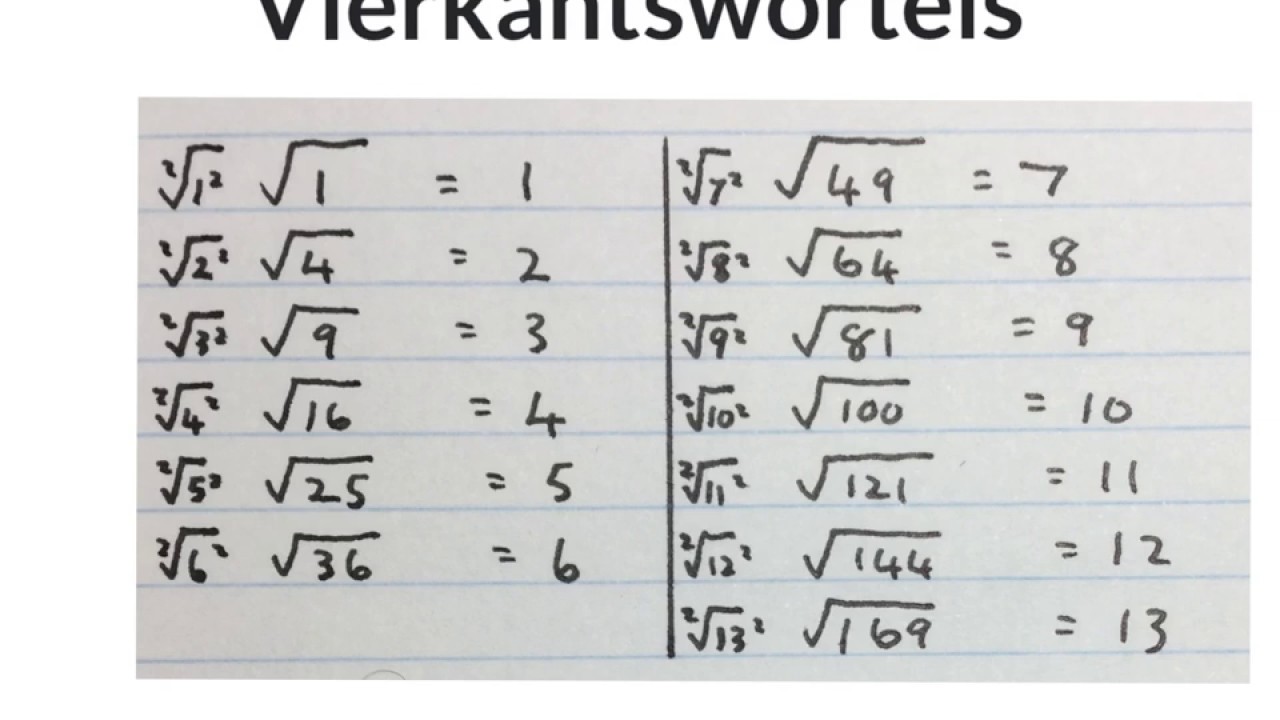 Vierkantswortels
²√1² √1 = 1
²√2² √4 = 2
²√3² √9 = 3
²√4² √16 = 4
²√5² √25 = 5
²√6² √36 = 6
²√7² √49 = 7
²√8² √64 = 8
²√9² √81 = 9
²√10² √100 = 10
²√11² √121 = 11
²√12² √144 = 12
²√13² √169 = 13